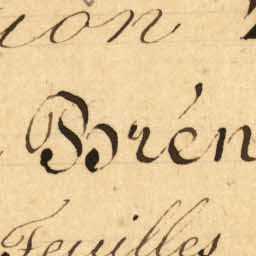 ion
Brén
Feuilles